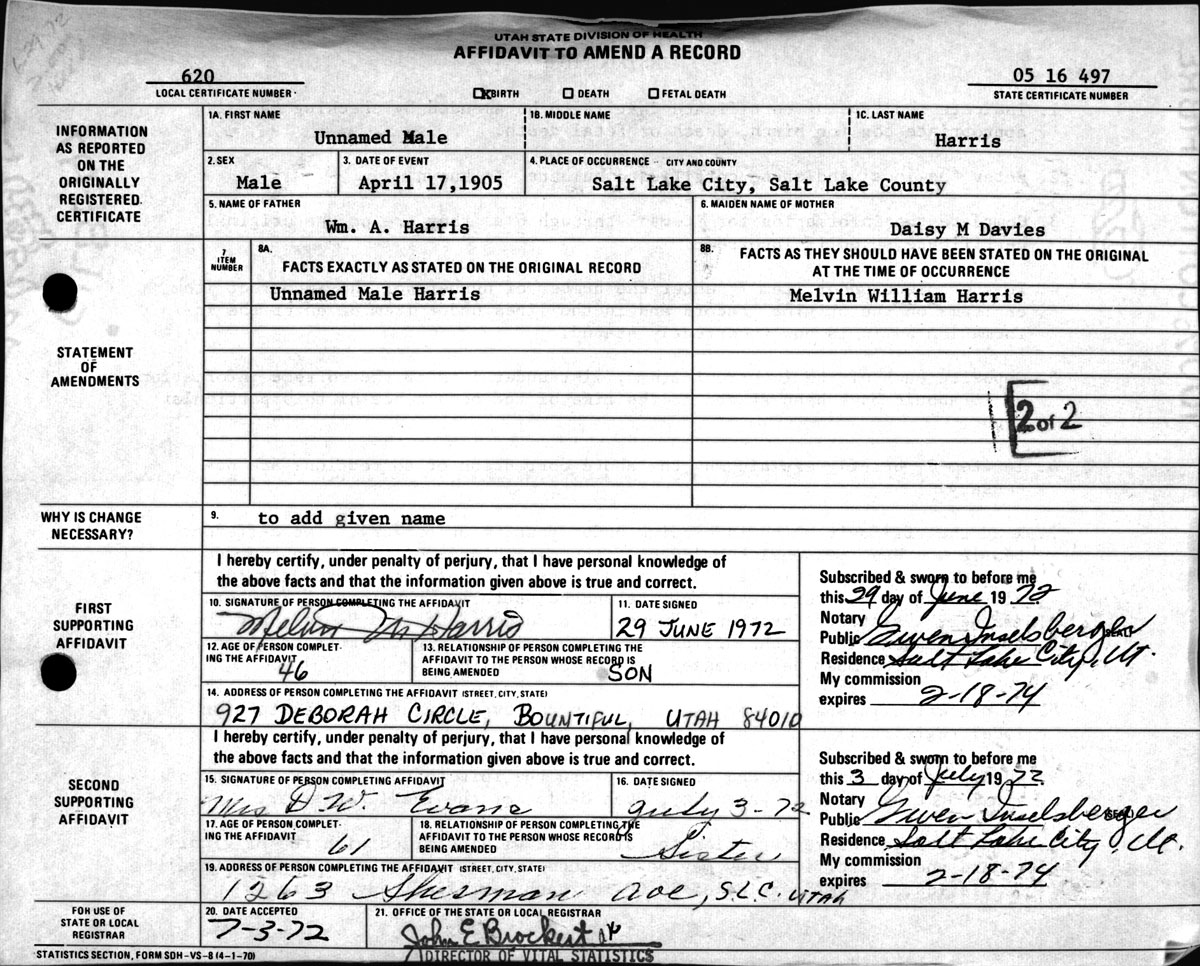 UTAH STATE DIVISION OF HEALTH
AFFIDAVIT TO AMEND A RECORD
620
LOCAL CERTIFICATE NUMBER
BIRTH DEATH FETAL DEATH
05 16 497
STATE CERTIFICATE NUMBER
INFORMATION AS REPORTED ON THE ORIGINALLY REGISTERED CERTIFICATE
1A. FIRST NAME 1B. MIDDLE NAME 1C. LAST NAME
Unnamed Male Harris
2. SEX 3. DATE OF EVENT 4. PLACE OF OCCURRENCE - CITY AND COUNTY
Male April 17,1905 Salt Lake City, Salt Lake County
5. NAME OF FATHER 6. MAIDEN NAME OF MOTHER
Wm. A. Harris Daisy M Davies
STATEMENT OF AMENDMENTS
7 ITEM NUMBER
8A. FACTS EXACTLY AS STATED ON THE ORIGINAL RECORD
8B. FACTS AS THEY SHOULD HAVE BEEN STATED ON THE ORIGINAL
AT THE TIME OF OCCURRENCE
Unnamed Male Harris Melvin William Harris
2 of 2
WHY IS CHANGE NECESSARY?
9. to add given name
FIRST SUPPORTING AFFIDAVIT
I hereby certify, under penalty of perjury, that I have personal knowledge of
the above facts and that the information given above is true and correct.
10. SIGNATURE OF PERSON COMPLETING THE AFFIDAVIT 11. DATE SIGNED
Melvin W Harris 29 JUNE 1972
12. AGE OF PERSON COMPLETING THE AFFIDAVIT
46
13. RELATIONSHIP OF PERSON COMPLETING THE
AFFIDAVIT TO THE PERSON WHOSE RECORD IS
BEING AMENDED SON
14. ADDRESS OF PERSON COMPLETING THE AFFIDAVIT (STREET, CITY, STATE)
927 DEBORAH CIRCLE, BOUNTIFUL, UTAH 84010
Subscribed & sworn to before me
this 29 day of June 19 72
Notary
Public Gwen Inselsberger
Residence Salt Lake City, Ut.
My commission
expires 2-18-74
SECOND SUPPORTING AFFIDAVIT
I hereby certify, under penalty of perjury, that I have personal knowledge of
the above facts and that the information given above is true and correct.
15. SIGNATURE OF PERSON COMPLETING AFFIDAVIT 16. DATE SIGNED
Mrs D W. Evans July 3-72
17. AGE OF PERSON COMPLETING THE AFFIDAVIT
61
18. RELATIONSHIP OF PERSON COMPLETING THE
AFFIDAVIT TO THE PERSON WHOSE RECORD IS
BEING AMENDED Sister
19. ADDRESS OF PERSON COMPLETING THE AFFIDAVIT (STREET, CITY, STATE)
1263 Sherman Ave, S.L.C. UTAH
Subscribed & sworn to before me
this 3 day of July 19 72
Notary
Public Gwen Inselsberger
Residence Salt Lake City, Ut.
My commission
expires 2-18-74
FOR USE OF STATE OR LOCAL REGISTRAR
20. DATE ACCEPTED 21. OFFICE OF THE STATE OR LOCAL REGISTRAR
7-3-72 John E Brockert
DIRECTOR OF VITAL STATISTICS
STATISTICS SECTION, FORM SDH-VS-8 (4-1-70)